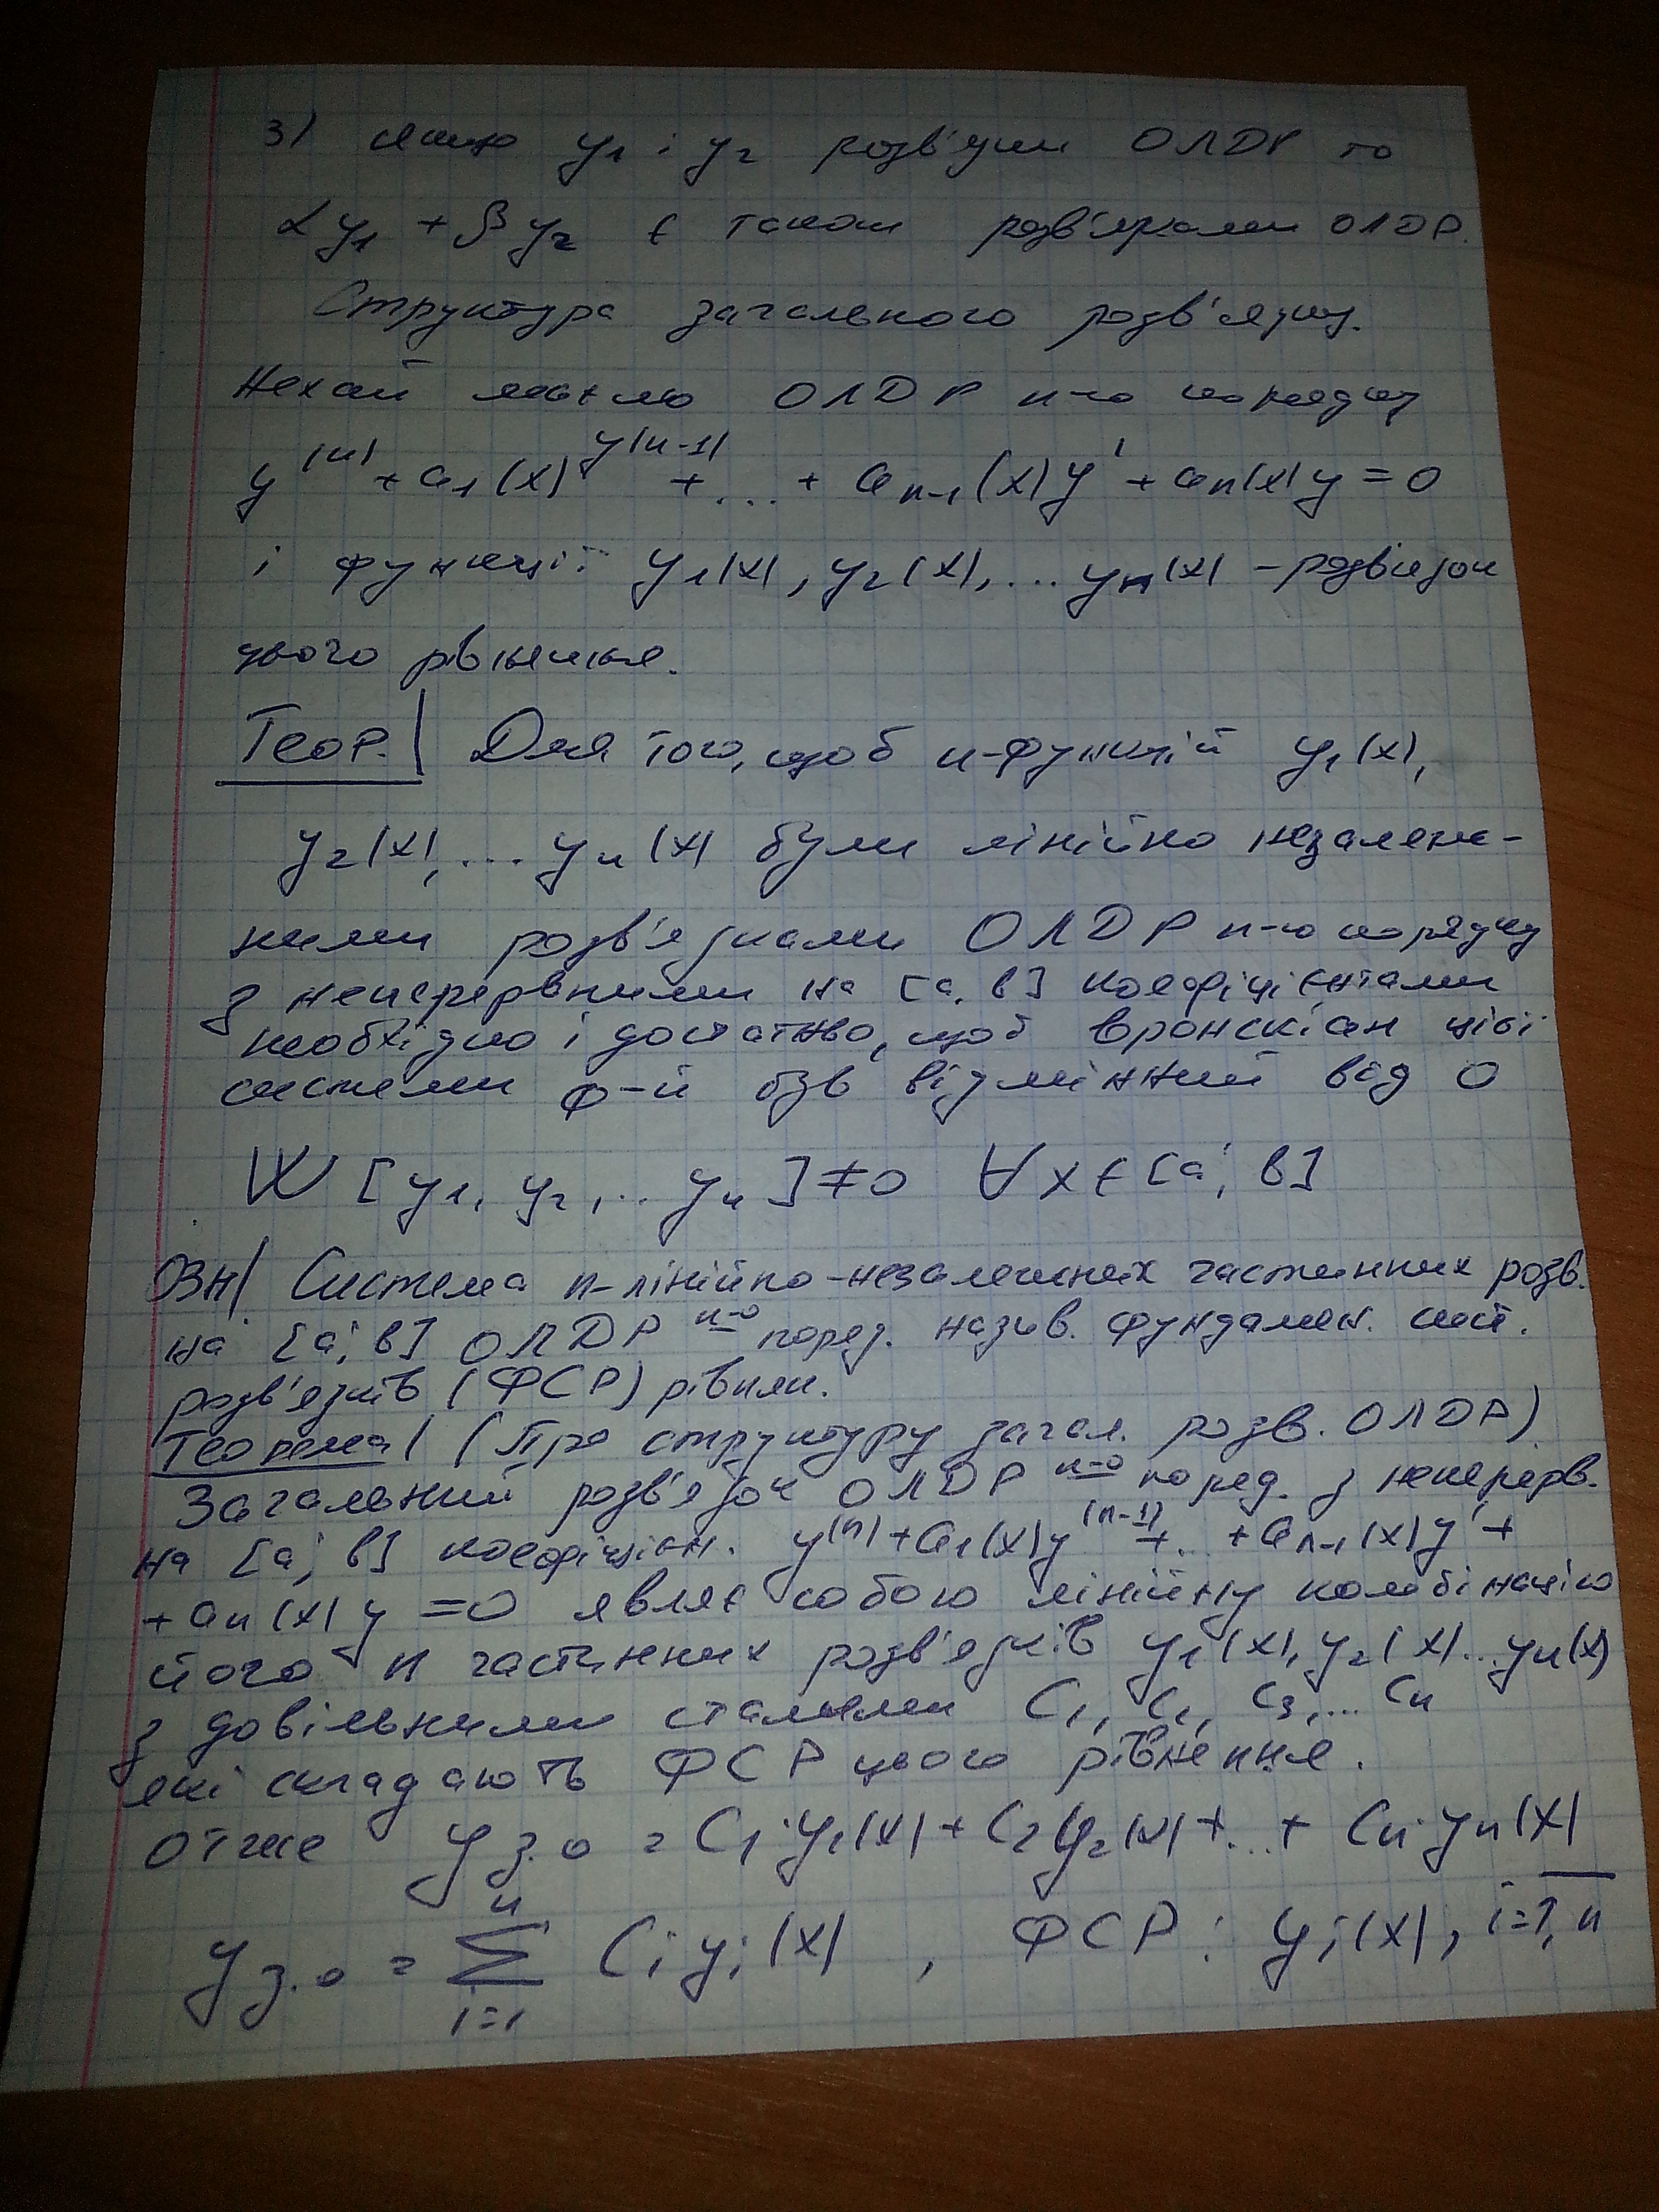 3) якщо y₁ і y₂ розв'язки ОЛДР то
αy₁ + βy₂ є також розв'язками ОЛДР.
Структура загального розв'язку.
Нехай маємо ОЛДР n-го порядку
y⁽ⁿ⁾ + a₁(x) y⁽ⁿ⁻¹⁾ + ... + aₙ₋₁(x)y' + aₙ(x)y = 0
і функції y₁(x), y₂(x), ... yₙ(x) - розв'язок
цього рівняння.
Теор.| Для того, щоб n-функцій y₁(x),
y₂(x), ... yₙ(x) були лінійно незалеж-
ними розв'язками ОЛДР n-го порядку
з неперервними на [a, b] коефіцієнтами
необхідно і достатньо, щоб вронскіан цієї
системи ф-й був відмінний від 0
W [y₁, y₂, .. yₙ] ≠ 0 ∀x ∈ [a; b]
Озн| Система n-лінійно-незалежних частинних розв.
на [a; b] ОЛДР n-о поряд. назив. фундамен. сист.
розв'язків (ФСР) рівнян.
Теорема| (Про структуру загал. розв. ОЛДР)
Загальний розв'язок ОЛДР n-о поряд. з неперерв.
на [a; b] коефіцієн. y⁽ⁿ⁾ + a₁(x)y⁽ⁿ⁻¹⁾ + .. + aₙ₋₁(x)y' +
+ aₙ(x)y = 0 являє собою лінійну комбінацію
його n частинних розв'язків y₁(x), y₂(x)...yₙ(x)
з довільними сталими C₁, C₂, C₃,... Cₙ
які складають ФСР цього рівняння.
отже y з.о = C₁·y₁(x) + C₂y₂(x) + .. + Cₙ·yₙ(x)
y з.о = ∑ⁿᵢ₌₁ Cᵢyᵢ(x) , ФСР: yᵢ(x), i=1,n